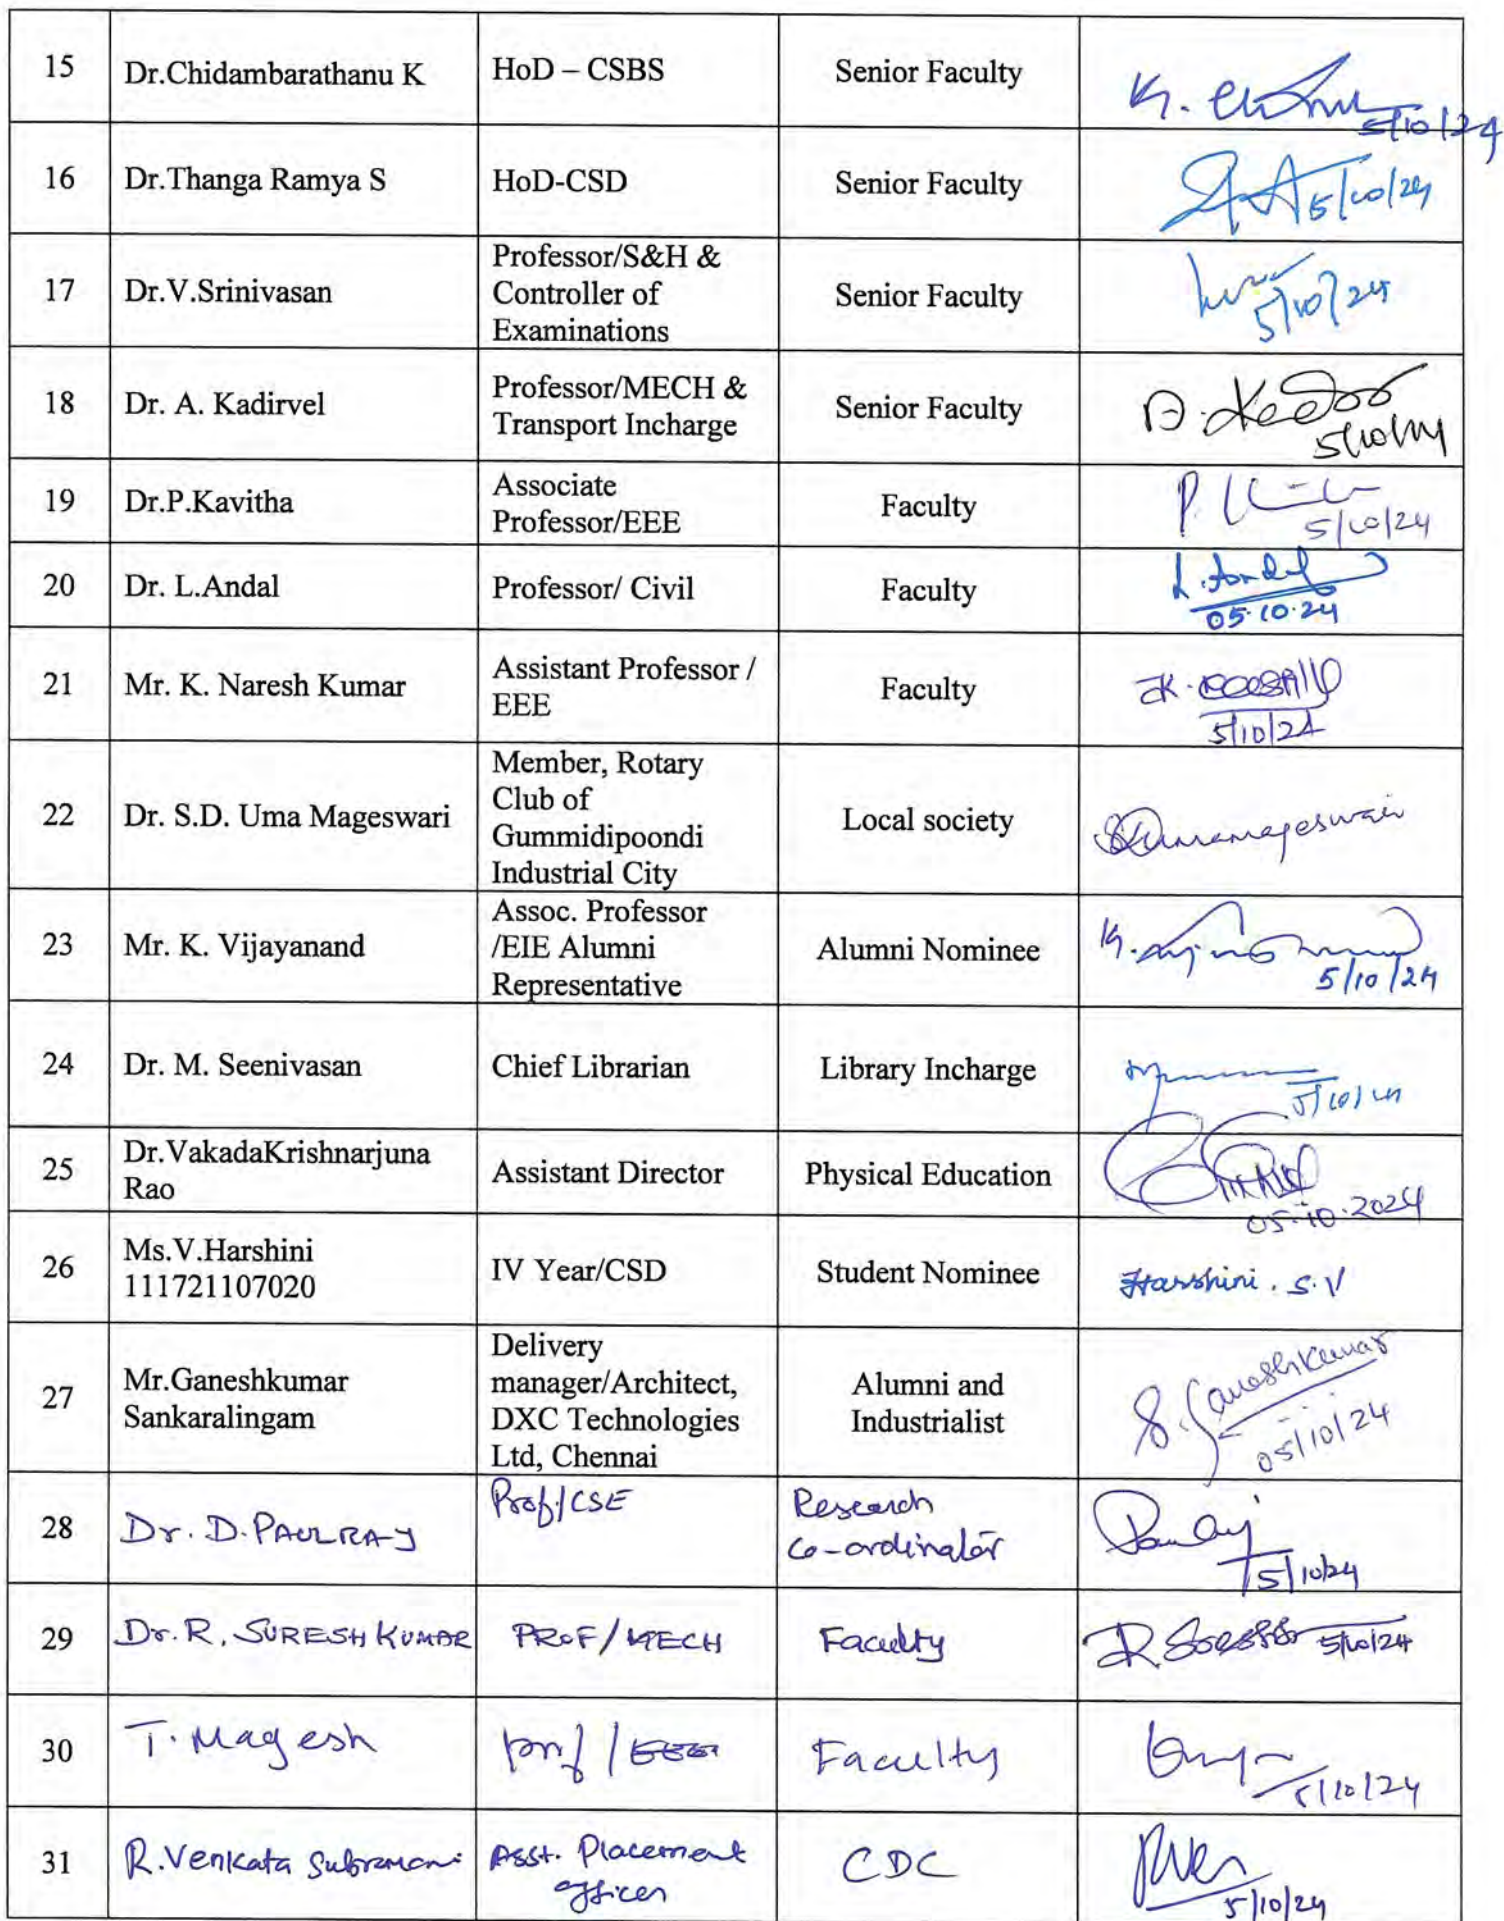 15
Dr.Chidambarathanu K
HoD – CSBS
Senior Faculty
5/10/24
16
Dr.Thanga Ramya S
HoD-CSD
Senior Faculty
5/10/24
17
Dr.V.Srinivasan
Professor/S&H &
Controller of
Examinations
Senior Faculty
5/10/24
18
Dr. A. Kadirvel
Professor/MECH &
Transport Incharge
Senior Faculty
5/10/24
19
Dr.P.Kavitha
Associate
Professor/EEE
Faculty
5/10/24
20
Dr. L.Andal
Professor/ Civil
Faculty
L.Andal
05.10.24
21
Mr. K. Naresh Kumar
Assistant Professor /
EEE
Faculty
5/10/24
22
Dr. S.D. Uma Mageswari
Member, Rotary
Club of
Gummidipoondi
Industrial City
Local society
23
Mr. K. Vijayanand
Assoc. Professor
/EIE Alumni
Representative
Alumni Nominee
5/10/24
24
Dr. M. Seenivasan
Chief Librarian
Library Incharge
5/10/24
25
Dr.VakadaKrishnarjuna
Rao
Assistant Director
Physical Education
05.10.2024
26
Ms.V.Harshini
111721107020
IV Year/CSD
Student Nominee
Harshini . S.V
27
Mr.Ganeshkumar
Sankaralingam
Delivery
manager/Architect,
DXC Technologies
Ltd, Chennai
Alumni and
Industrialist
S. Ganeshkumar
05/10/24
28
Dr. D. PAULRAJ
Prof/CSE
Research
Co-ordinator
5/10/24
29
Dr. R. SURESH KUMAR
PROF/MECH
Faculty
5/10/24
30
T. Magesh
Prof/EEE
Faculty
5/10/24
31
R.Venkata Subramani
Asst. Placement
officer
CDC
5/10/24